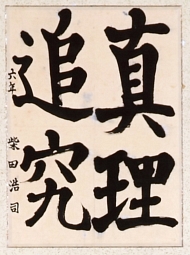 真理
追究
六年 柴田浩司